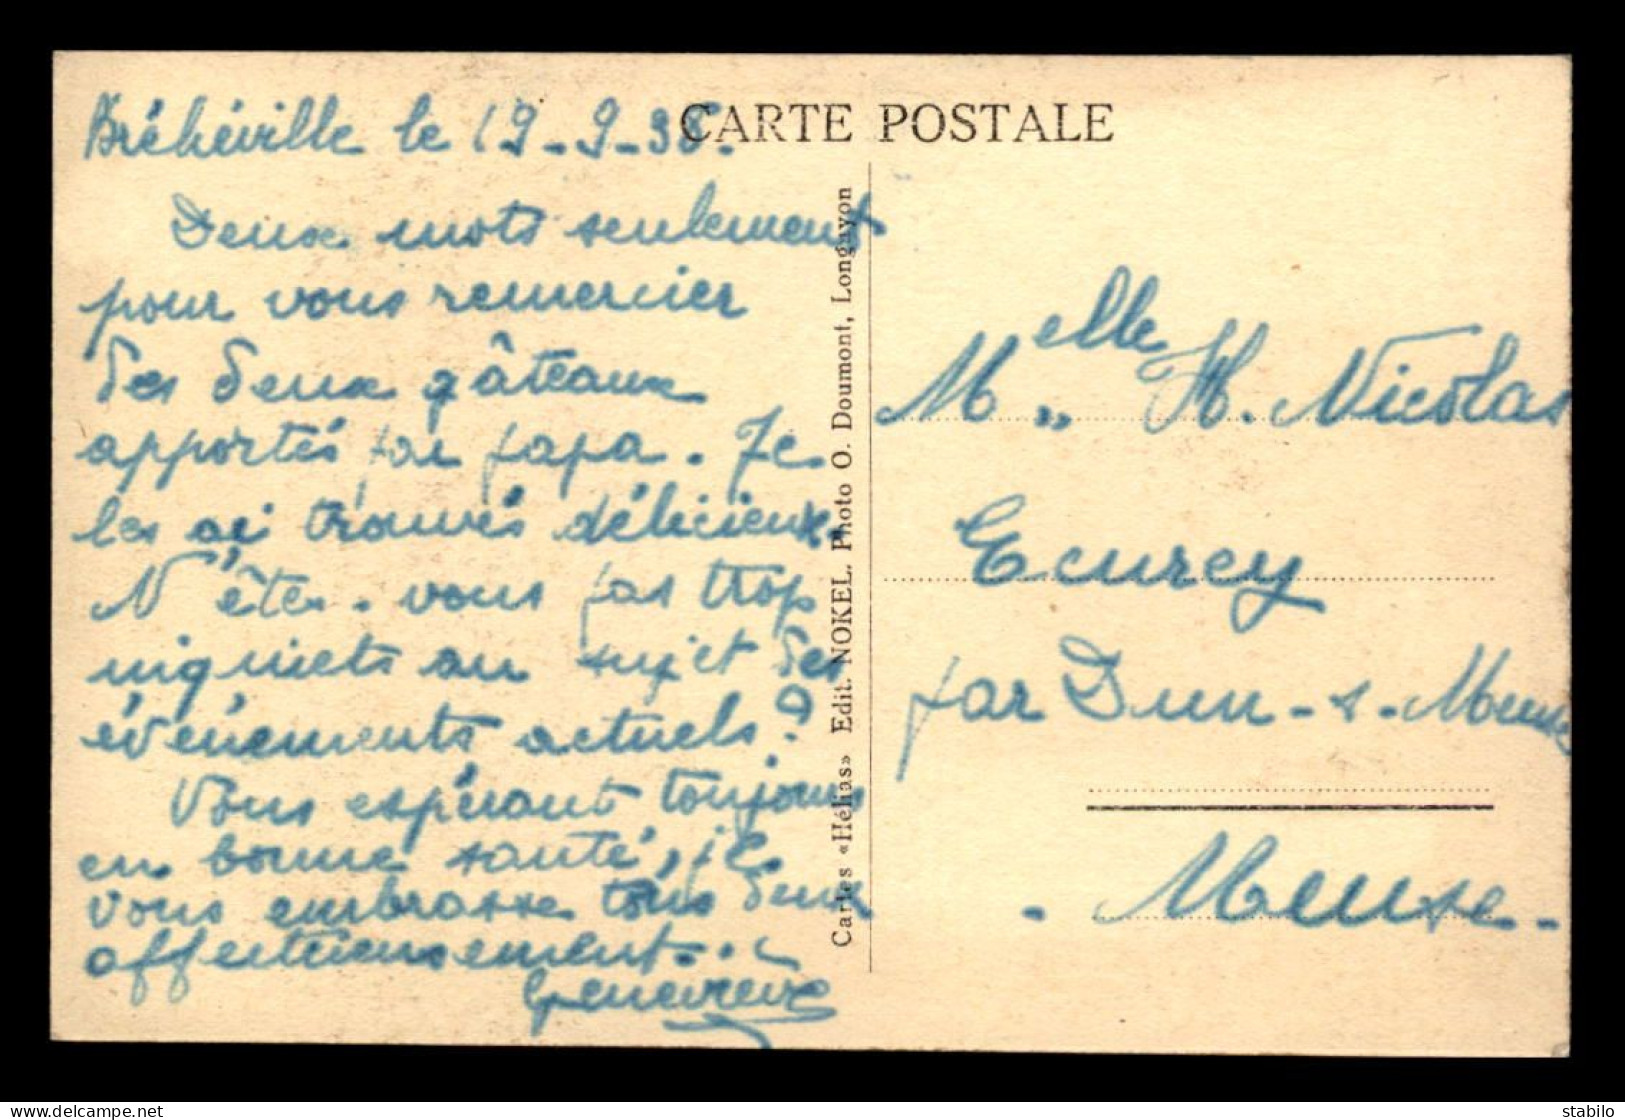 CARTE POSTALE
Bréhéville le 19-9-38.
Deux mots seulement
pour vous remercier
des deux gâteaux
apportés par papa. Je
les ai trouvés délicieux.
N'êtes-vous pas trop
inquiets au sujet des
événements actuels?
Vous espérant toujours
en bonne santé, je
vous embrasse tous deux
affectueusement.
Geneviève
Cartes «Hélias» Edit. NOKEL. Photo O. Doumont, Longuyon
Melle H. Nicolas
Ecurey
par Dun-s-Meuse
- Meuse -
stabilo